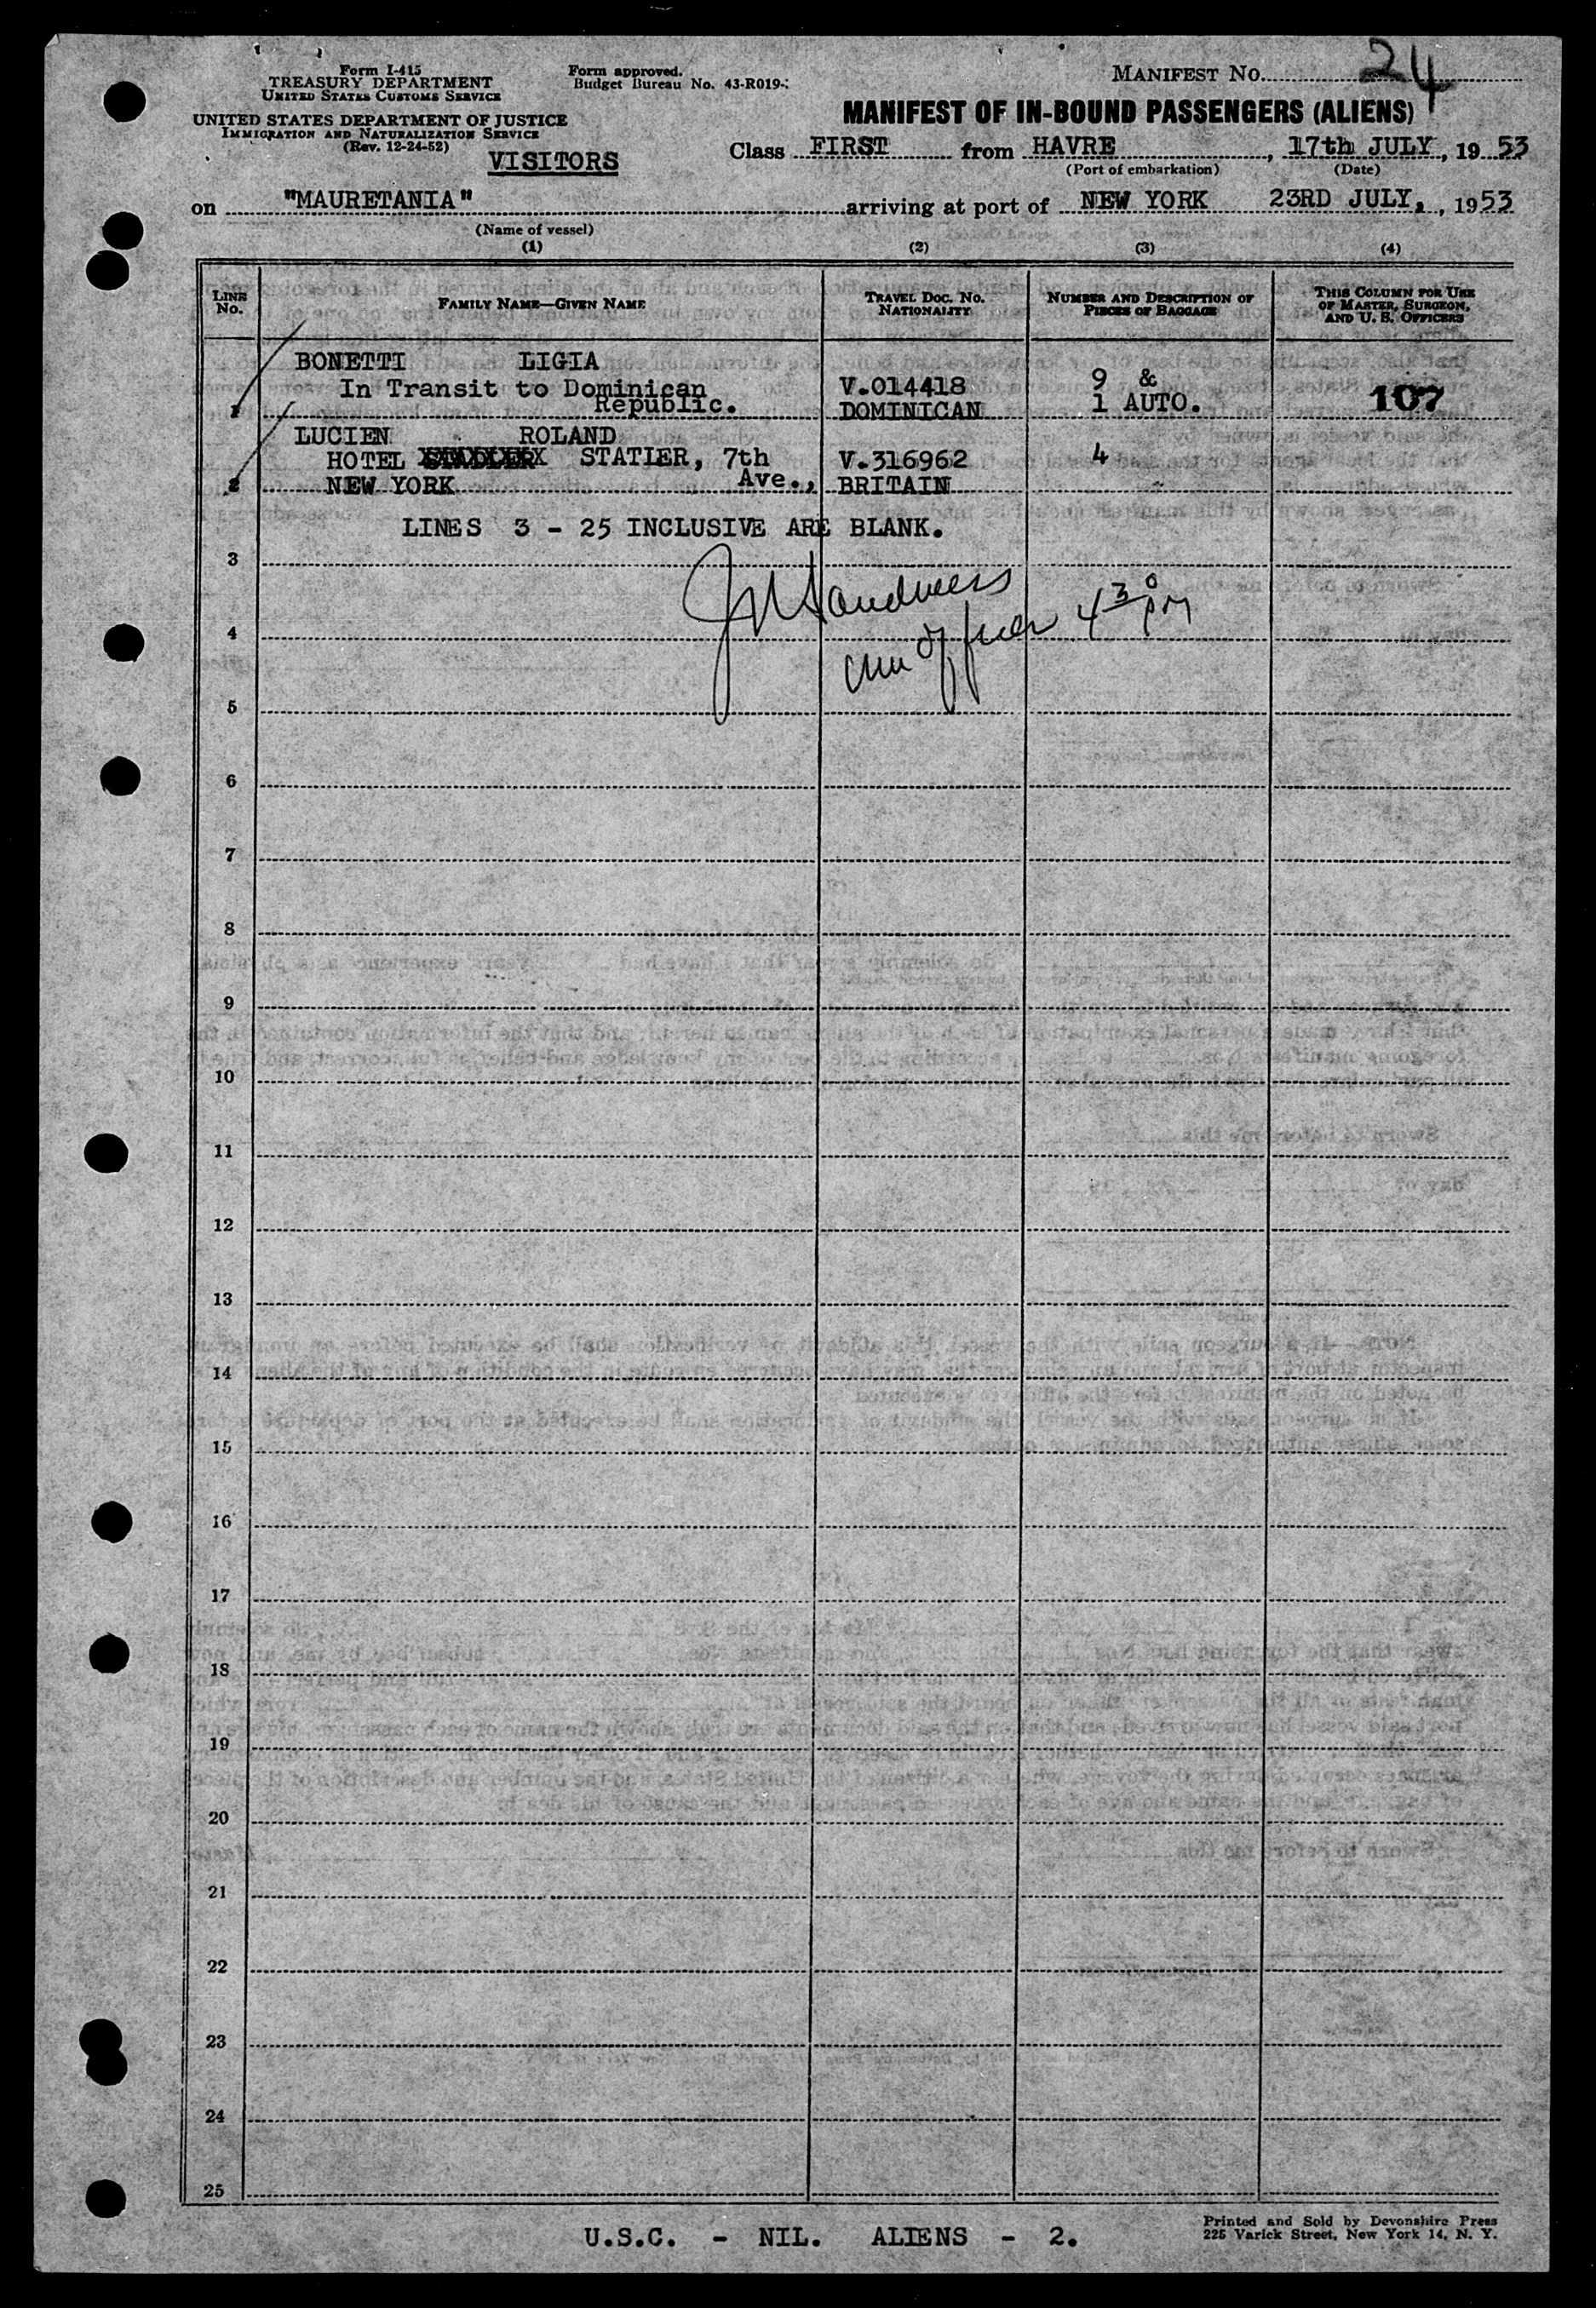 Form I-415
TREASURY DEPARTMENT
UNITED STATES CUSTOMS SERVICE
UNITED STATES DEPARTMENT OF JUSTICE
IMMIGRATION AND NATURALIZATION SERVICE
(Rev. 12-24-52)
Form approved.
Budget Bureau No. 43-R019-
MANIFEST NO. 24
MANIFEST OF IN-BOUND PASSENGERS (ALIENS)
VISITORS
Class FIRST from HAVRE, 17th JULY, 1953
(Port of embarkation) (Date)
on "MAURETANIA" arriving at port of NEW YORK 23RD JULY, , 1953
(Name of vessel)
(1) (2) (3) (4)
LINE NO.
FAMILY NAME—GIVEN NAME
TRAVEL DOC. NO. NATIONALITY
NUMBER AND DESCRIPTION OF PIECES OF BAGGAGE
THIS COLUMN FOR USE OF MASTER, SURGEON, AND U. S. OFFICERS
BONETTI LIGIA
In Transit to Dominican V.014418 9 &
1 Republic. DOMINICAN 1 AUTO. 107
LUCIEN ROLAND
HOTEL STATIER, 7th V.316962 4
2 NEW YORK Ave., BRITAIN
LINES 3 - 25 INCLUSIVE ARE BLANK.
3
4
4 30 pm
5
6
7
8
9
10
11
12
13
14
15
16
17
18
19
20
21
22
23
24
25
U.S.C. - NIL. ALIENS - 2.
Printed and Sold by Devonshire Press
225 Varick Street, New York 14, N. Y.